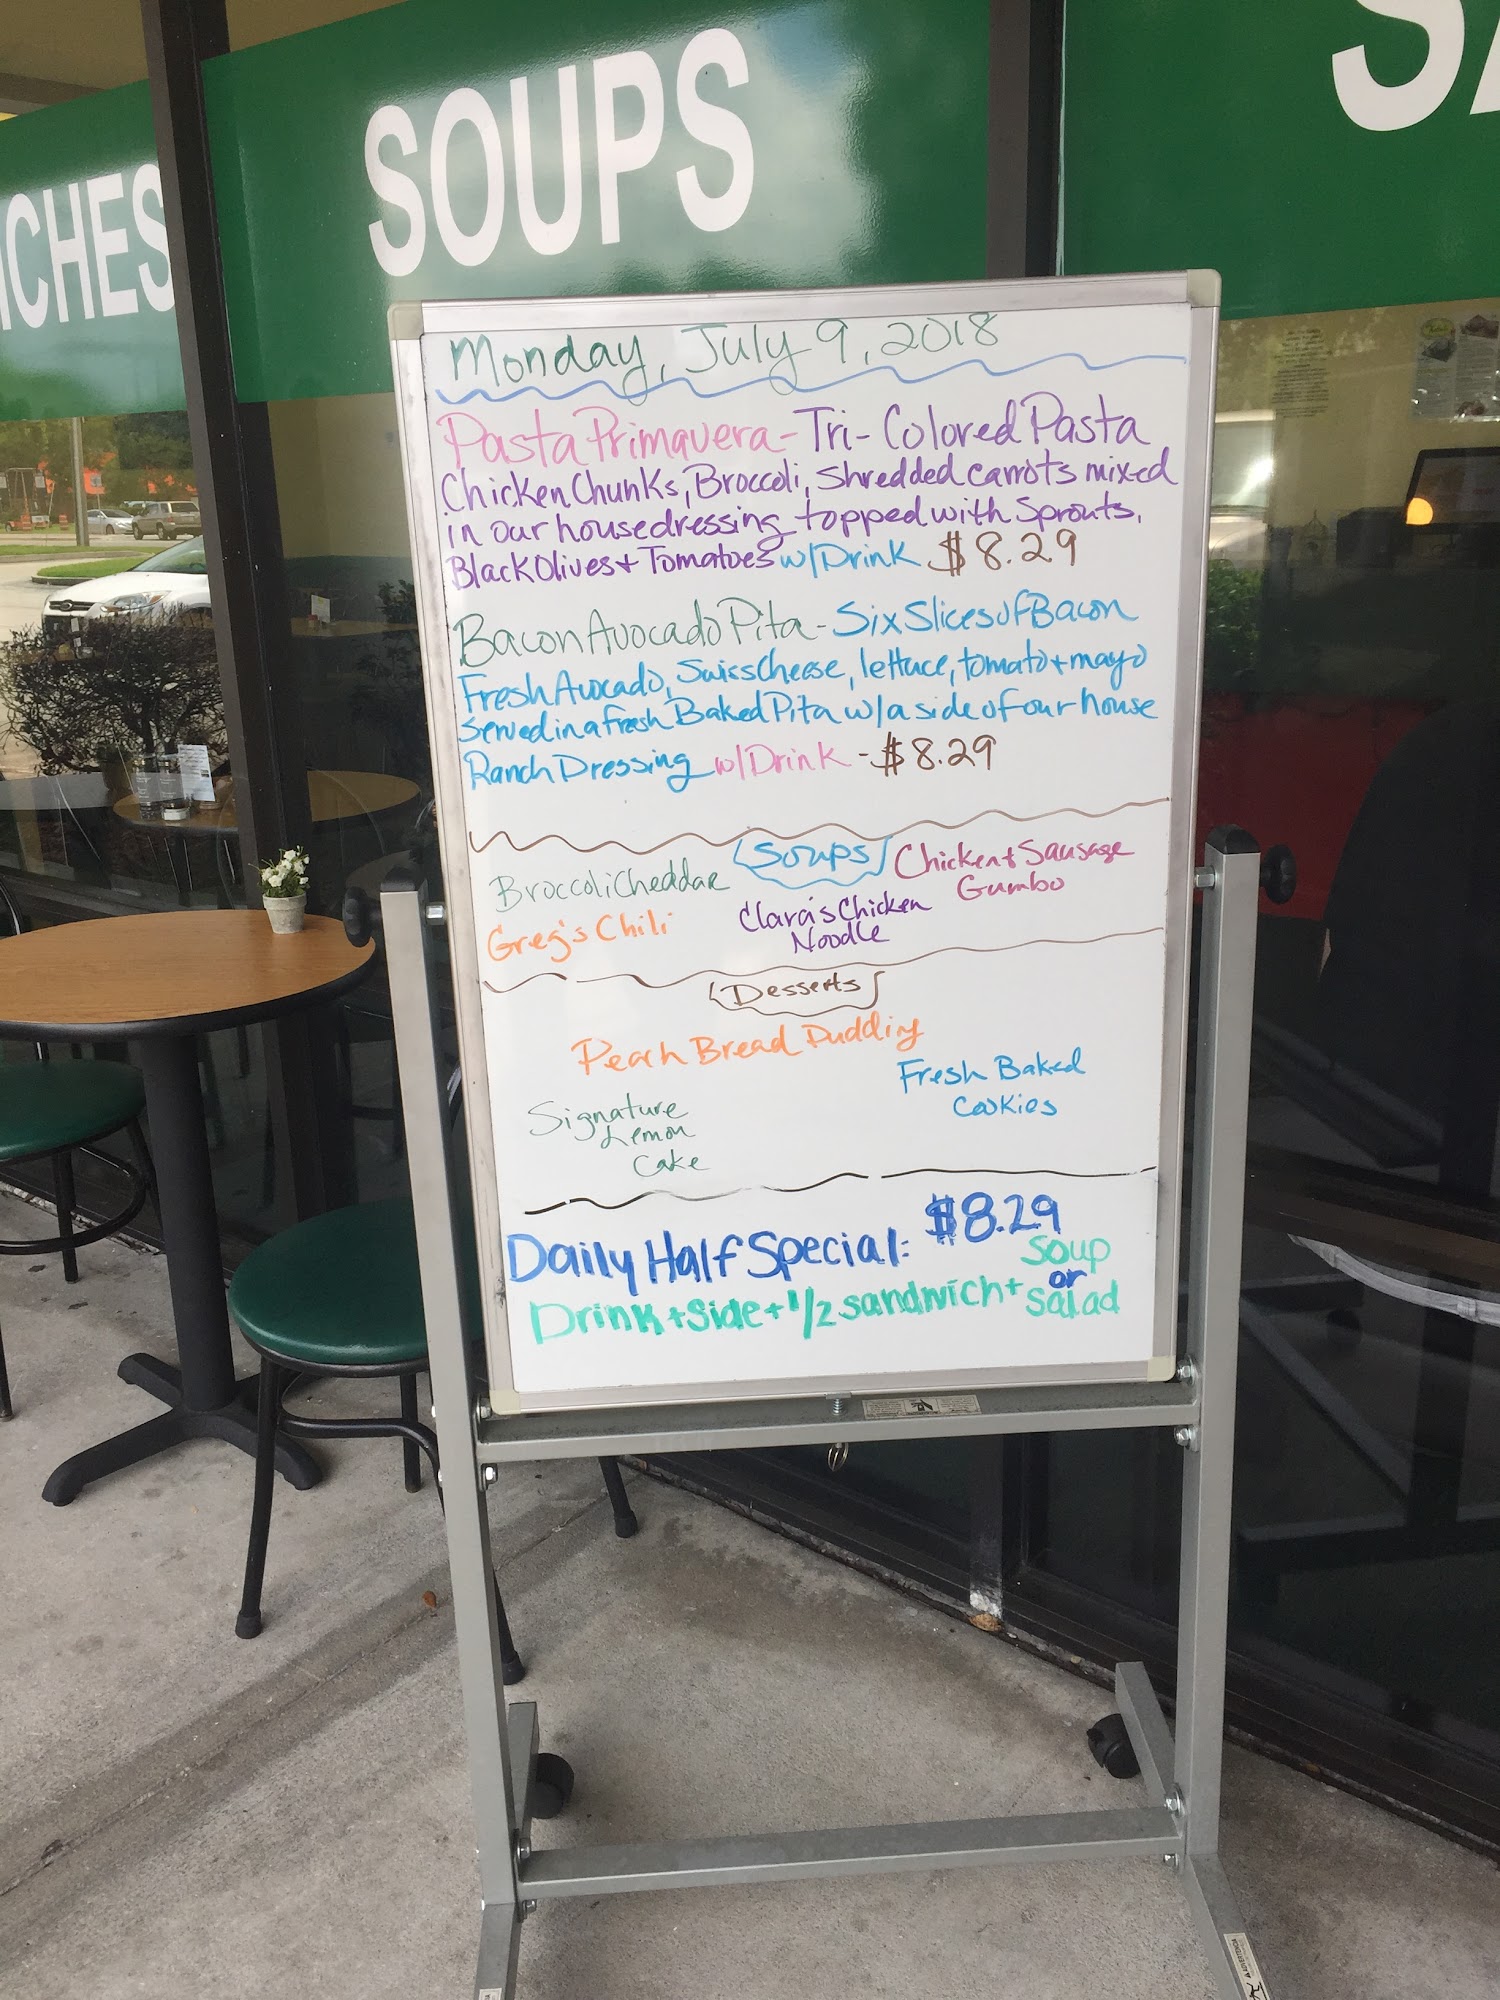 ICHES
SOUPS
SA
Monday, July 9, 2018
Pasta Primavera - Tri-Colored Pasta
Chicken Chunks, Broccoli, Shredded carrots mixed
in our house dressing topped with Sprouts,
Black Olives + Tomatoes w/Drink $8.29
Bacon Avocado Pita - Six Slices of Bacon
Fresh Avocado, Swiss Cheese, lettuce, tomato + mayo
served in a fresh Baked Pita w/a side of our house
Ranch Dressing w/Drink - $8.29
Soups
Broccoli Cheddar
Chicken + Sausage
Gumbo
Greg's Chili
Clara's Chicken
Noodle
Desserts
Peach Bread Pudding
Fresh Baked
Cookies
Signature
Lemon
Cake
Daily Half Special: $8.29
Drink + Side + 1/2 sandwich + Soup
or
Salad